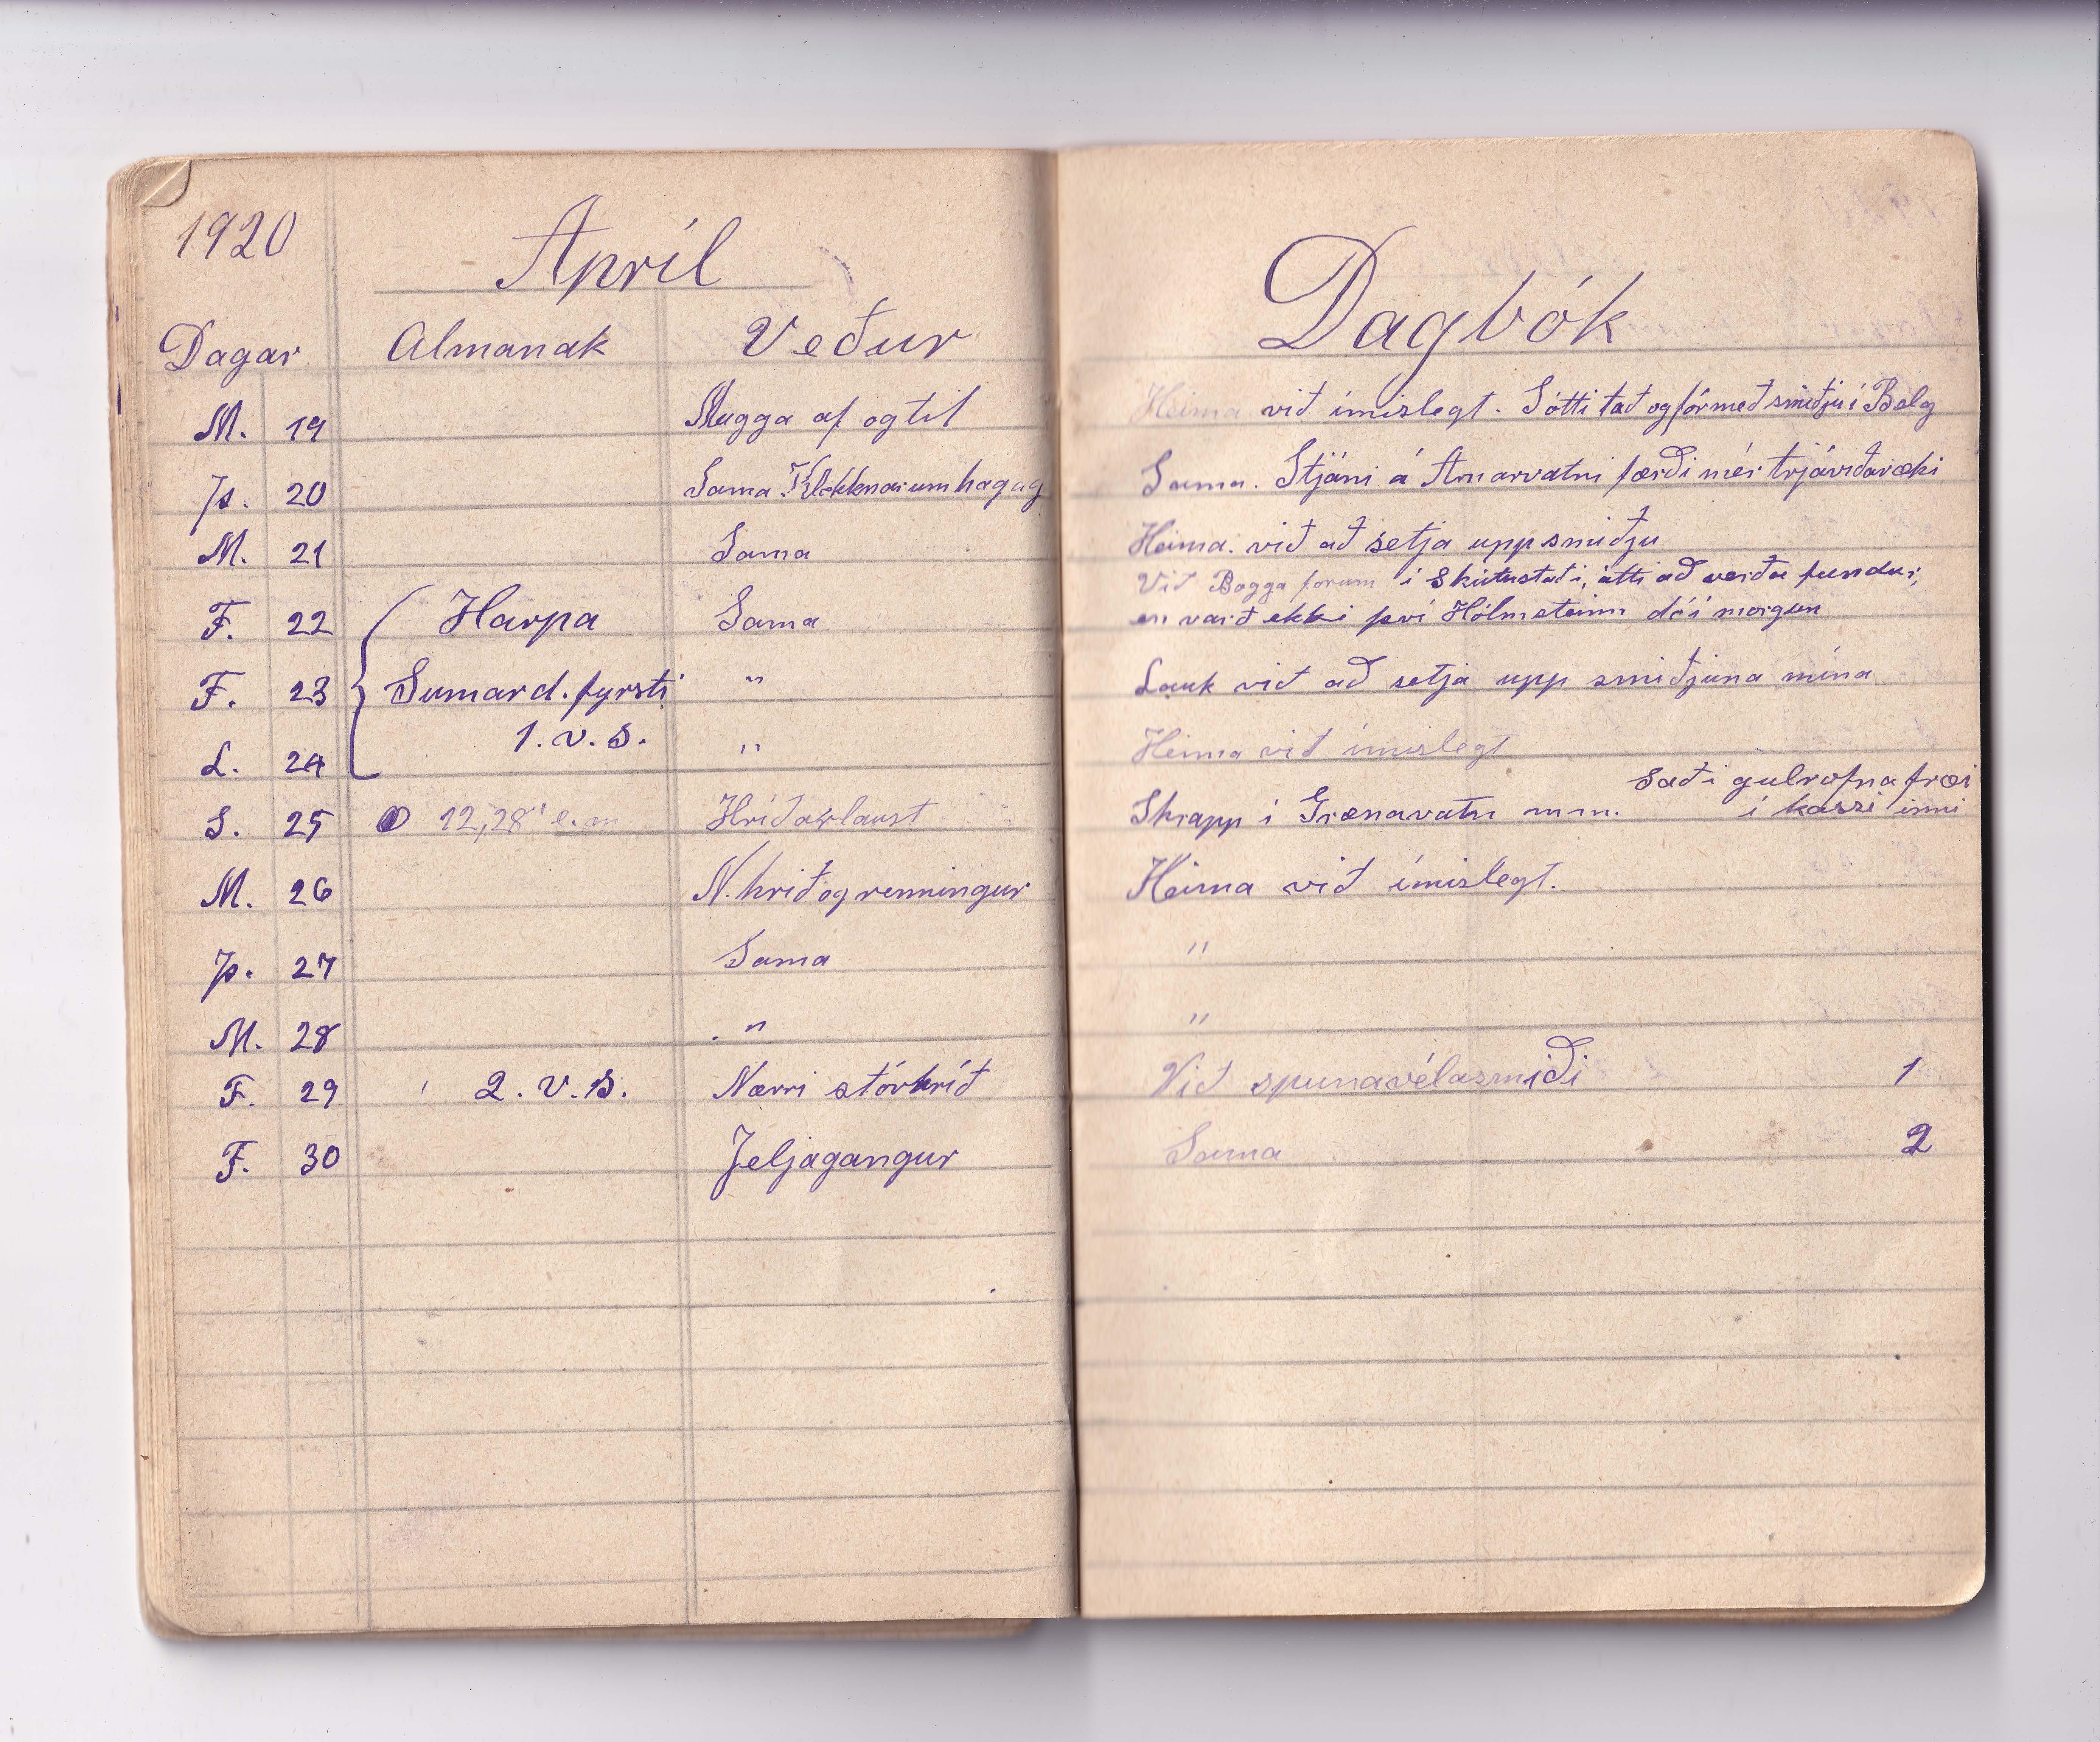 1920
Apríl
Dagar Almanak Veður
M. 19 Mugga af og til
Þ. 20 Sama. Klekknar um hagag
M. 21 Sama
F. 22 Harpa Sama
F. 23 Sumard. fyrsti "
L. 24 1. v. s. "
S. 25 12,28' e.m Hríðarlaust
M. 26 N. hríð og renningur
Þ. 27 Sama
M. 28 "
F. 29 2. v. s. Nærri stórhríð
F. 30 Jeljagangur
Dagbók
Heima við ímislegt. Sótti tað og fór með smiðju í Belg
Sama. Stjáni á Arnarvatni færði mér trjáviðaræki
Heima. við að setja upp smiðju
Við Bogga forum í Skútustaði, átti að verða fundur,
en varð ekki því Hólmsteinn dó í morgun
Lauk við að setja upp smiðjuna mína
Heima við ímislegt
Saði gulrofna fræi
Skrapp í Grænavatn m.m. í kassi inni
Heima við ímislegt.
"
"
Við spunavélasmiði 1
Sama 2